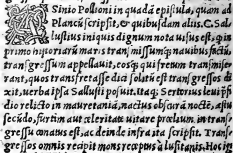 ASinio Pollioni in quadã epistula, quam ad
Plancũ scripsit, & quibusdam aliis. C. Sal
lustius iniquis dignum nota visus est, quia in
primo historiarũ maris transmissumq́; navibus factũ,
transgressum appellavit, eosq́; qui fretum transmise-
rant, quos transfretasse dici solutũ est transgressos di
xit, verba ipsa Sallusti posuit. Itaq́; Sertorius levi præ
dio relicto in mauretania, nactus obscurã noctẽ, æstu
secundo, furtim aut celeritate vitare prœlium in trans-
gressu conatus est, ac deinde infra ita scripsit. Tran
gressos omnis recipit mons receptus à lusitanis. Hoc ig